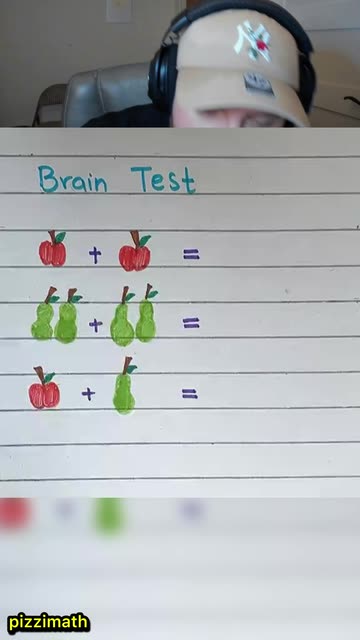 NY
Brain Test
+ =
+ =
+ =
pizzimath